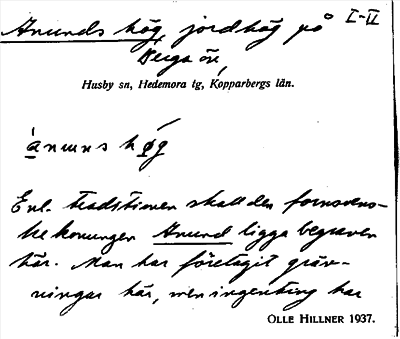 Anunds hög, jordhög på I-II
Berga ör,
Husby sn, Hedemora tg, Kopparbergs län.
ánuns hø̀g
Enl. traditionen skall den fornsvens-
ke konungen Anund ligga begraven
här. Man har företagit gräv-
ningar här, men ingenting har
OLLE HILLNER 1937.